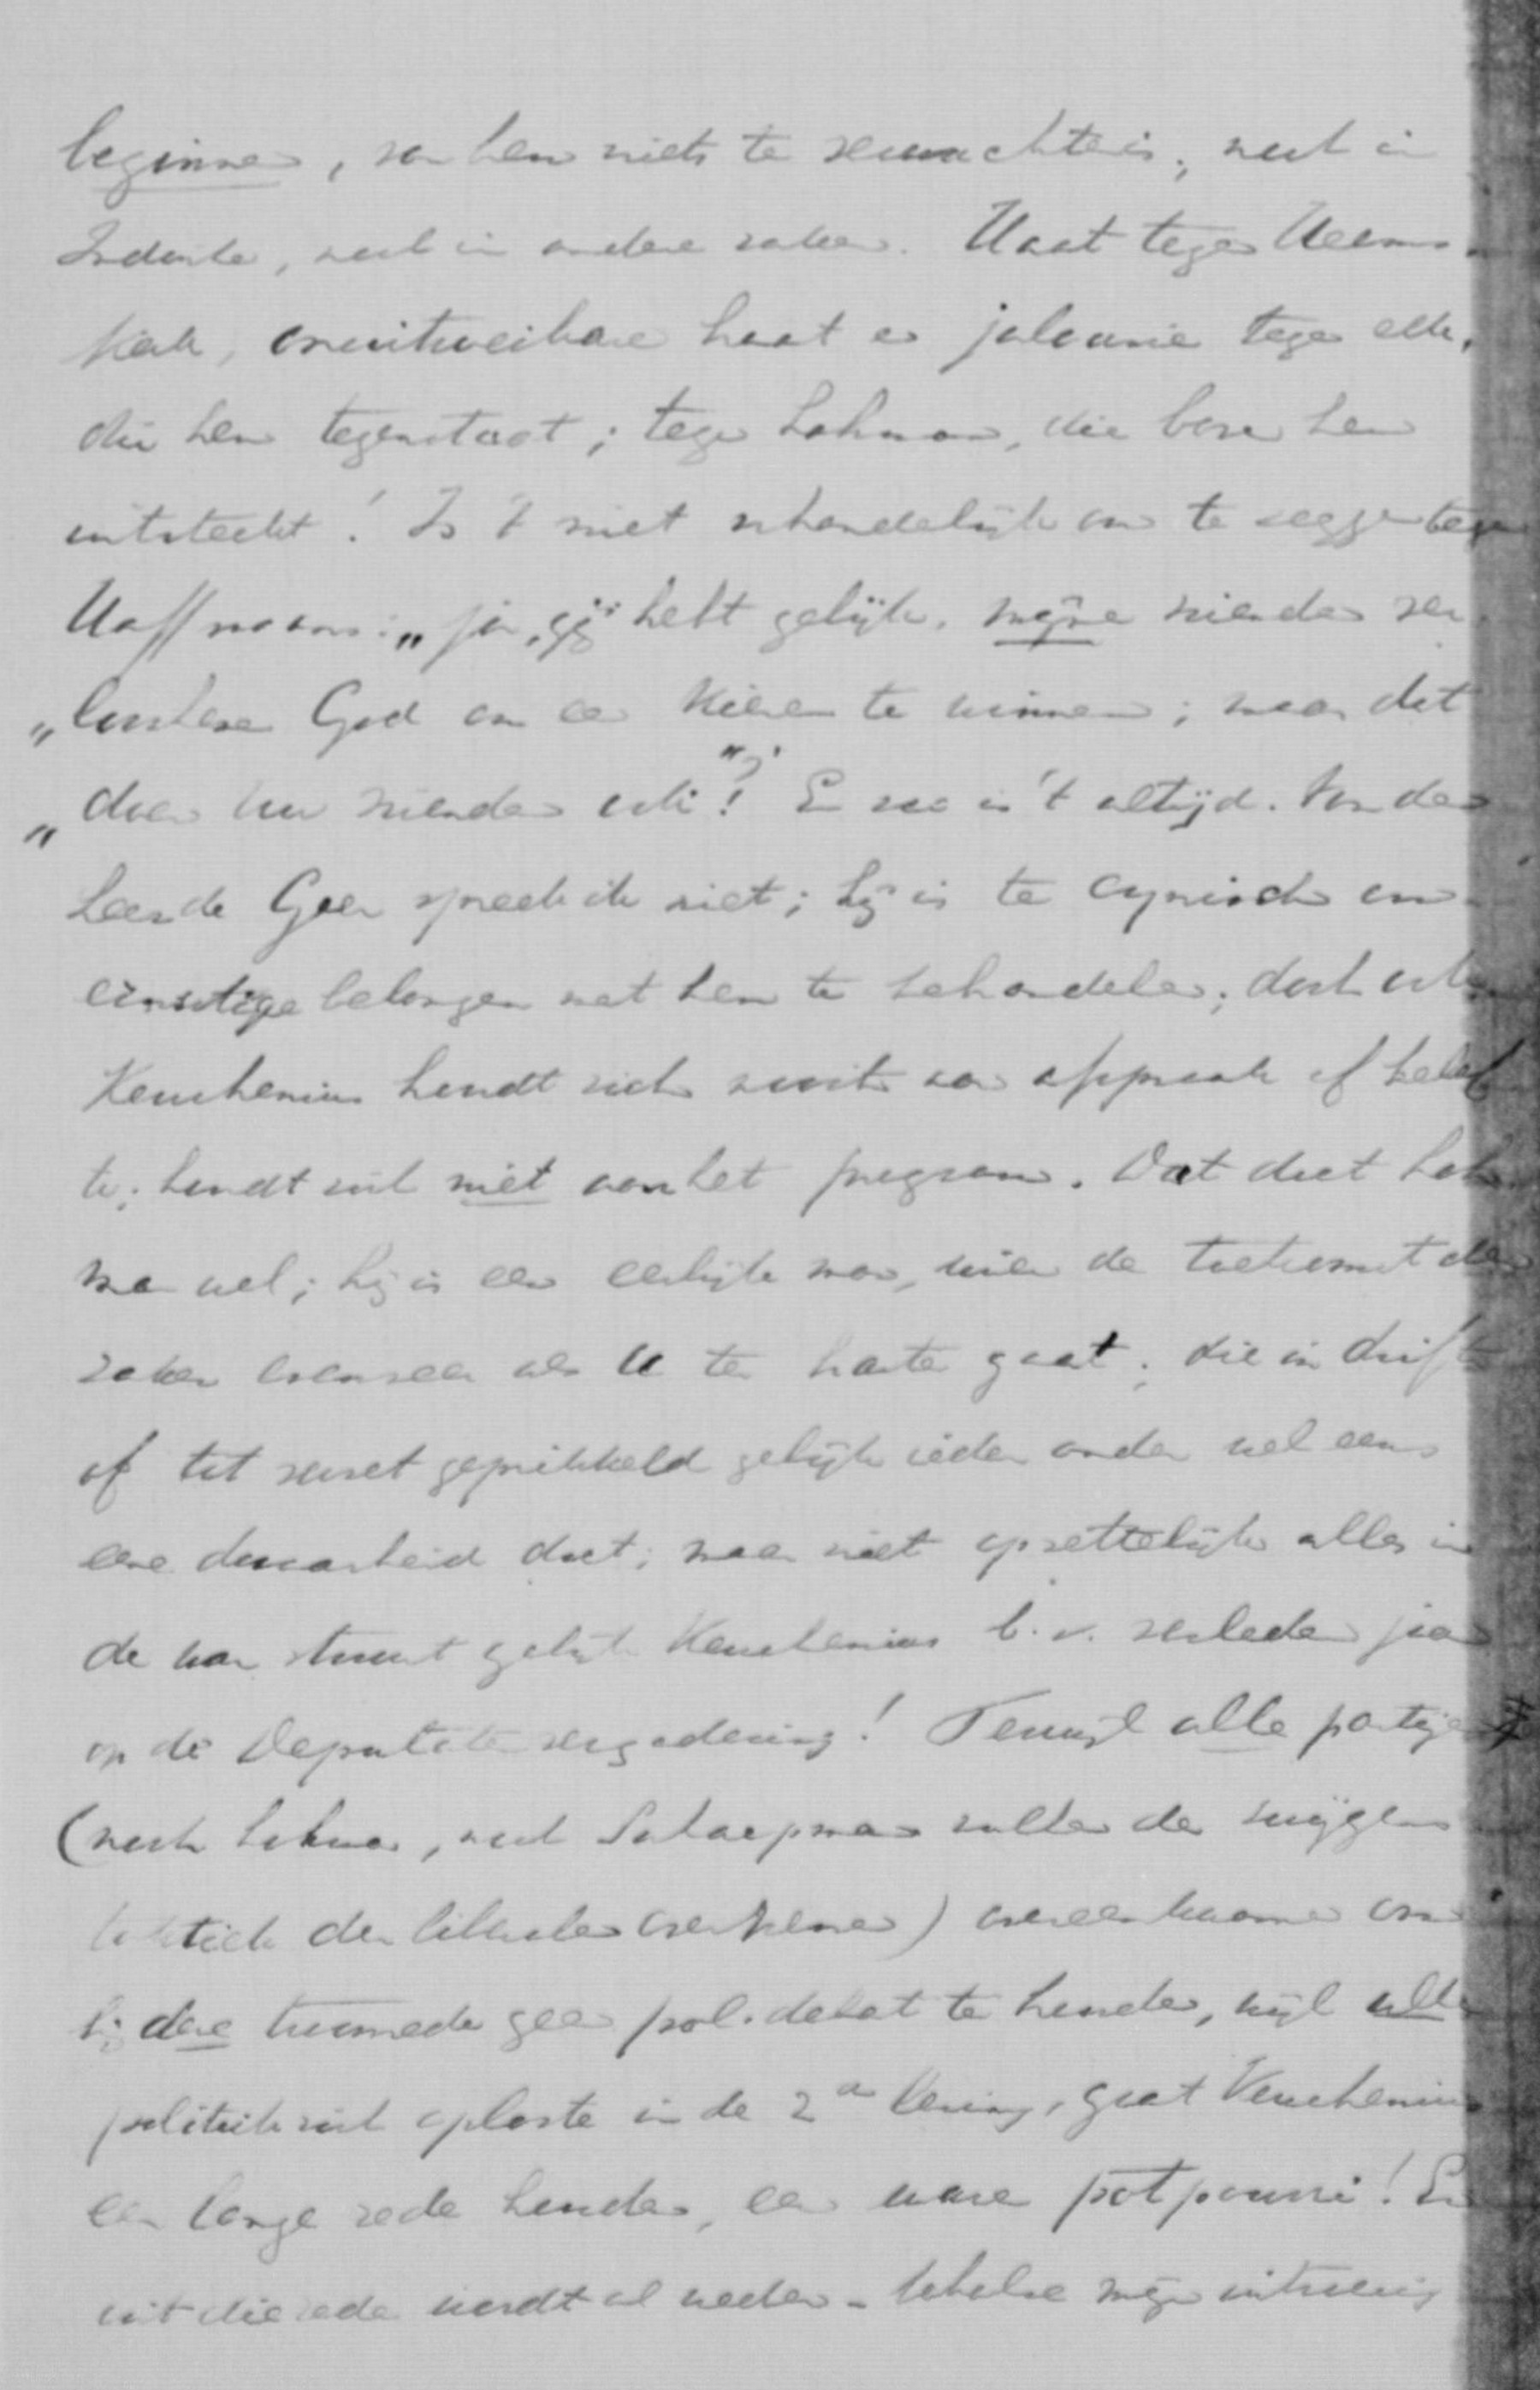 beginne, van hem niets te verwachten is, noch in
Indische, noch in andere zaken. Haat tegen Heems-
kerk, onuitwischbare haat en jalousie tegen elk,
die hem tegenstaat; tegen Lohman, die boven hem
uitsteekt! Is 't niet schandelijk om te zeggen tegen
Haffmans: „ja, gij hebt gelijk, mijne vrienden ver-
„loochenen God om een kiezer te winnen; maar dat
„doen uw vrienden ook"? En zoo is 't altijd. Van den
heer de Geer spreek ik niet; hij is te cynisch om
ernstige belangen met hem te behandelen; doch ook
Keuchenius houdt zich nooit aan afspraak of belof-
te; houdt zich niet aan het program. Dat doet Loh-
man wel; hij is een eerlijk man, wien de toekomst der
zaken evenzeer als U ter harte gaat; die in drift
of tot verzet geprikkeld gelijk ieder ander wel eens
eene dwaasheid doet; maar niet opzettelijk alles in
de war stuurt gelijk Keuchenius b.v. verleden jaar
op de Deputatenvergadering! Terwijl alle partijen
(noch Lohman, noch Schaepman zullen de
taktiek der liberalen overnemen) overeenkwamen om
bij deze troonrede geen pol. debat te houden, wijl alle
politiek zich oploste in de 2e lezing, gaat Keuchenius
een lange rede houden, een ware potpourri! En
uit die rede wordt al weder - behalve mijn uitvoerig